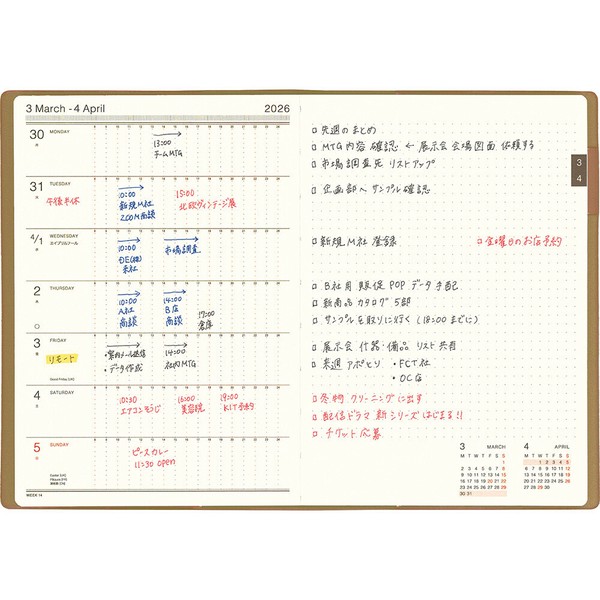 3 March - 4 April
2026
30 MONDAY
13:00
チームMTG
31 TUESDAY
午後半休
10:00
新規M社
ZOOM商談
15:00
北欧ヴィンテージ展
4/1 WEDNESDAY
エイプリルフール
10:00
市場調査
来社
2 THURSDAY
10:00
A社
商談
14:00
B店
商談
17:00
倉庫
3 FRIDAY
リモート
・案内メール送信
・データ作成
14:00
社内MTG
Good Friday [UK]
4 SATURDAY
10:30
エアコンそうじ
15:00
美容院
19:00
5 SUNDAY
ピースカレー
11:30 open
WEEK 14
□ 先週のまとめ
□ MTG内容確認 ← 展示会 会場図面 依頼する
□ 市場調査先 リストアップ
□ 企画部へ サンプル確認
□ 新規M社 登録
□ 金曜日のお店予約
□ B社用 販促POP データ手配
□ 新商品カタログ 5部
□ サンプルを取りに行く (18:00までに)
□ 展示会 什器・備品 リスト共有
□ 来週 アポとり ・FCT社
・OC店
□ 冬物 クリーニングに出す
□ 配信ドラマ 新シリーズはじまる!!
□ チケット応募
3
4
3 MARCH
M T W T F S S
1
2 3 4 5 6 7 8
9 10 11 12 13 14 15
16 17 18 19 20 21 22
23 24 25 26 27 28 29
30 31
4 APRIL
M T W T F S S
1 2 3 4 5
6 7 8 9 10 11 12
13 14 15 16 17 18 19
20 21 22 23 24 25 26
27 28 29 30